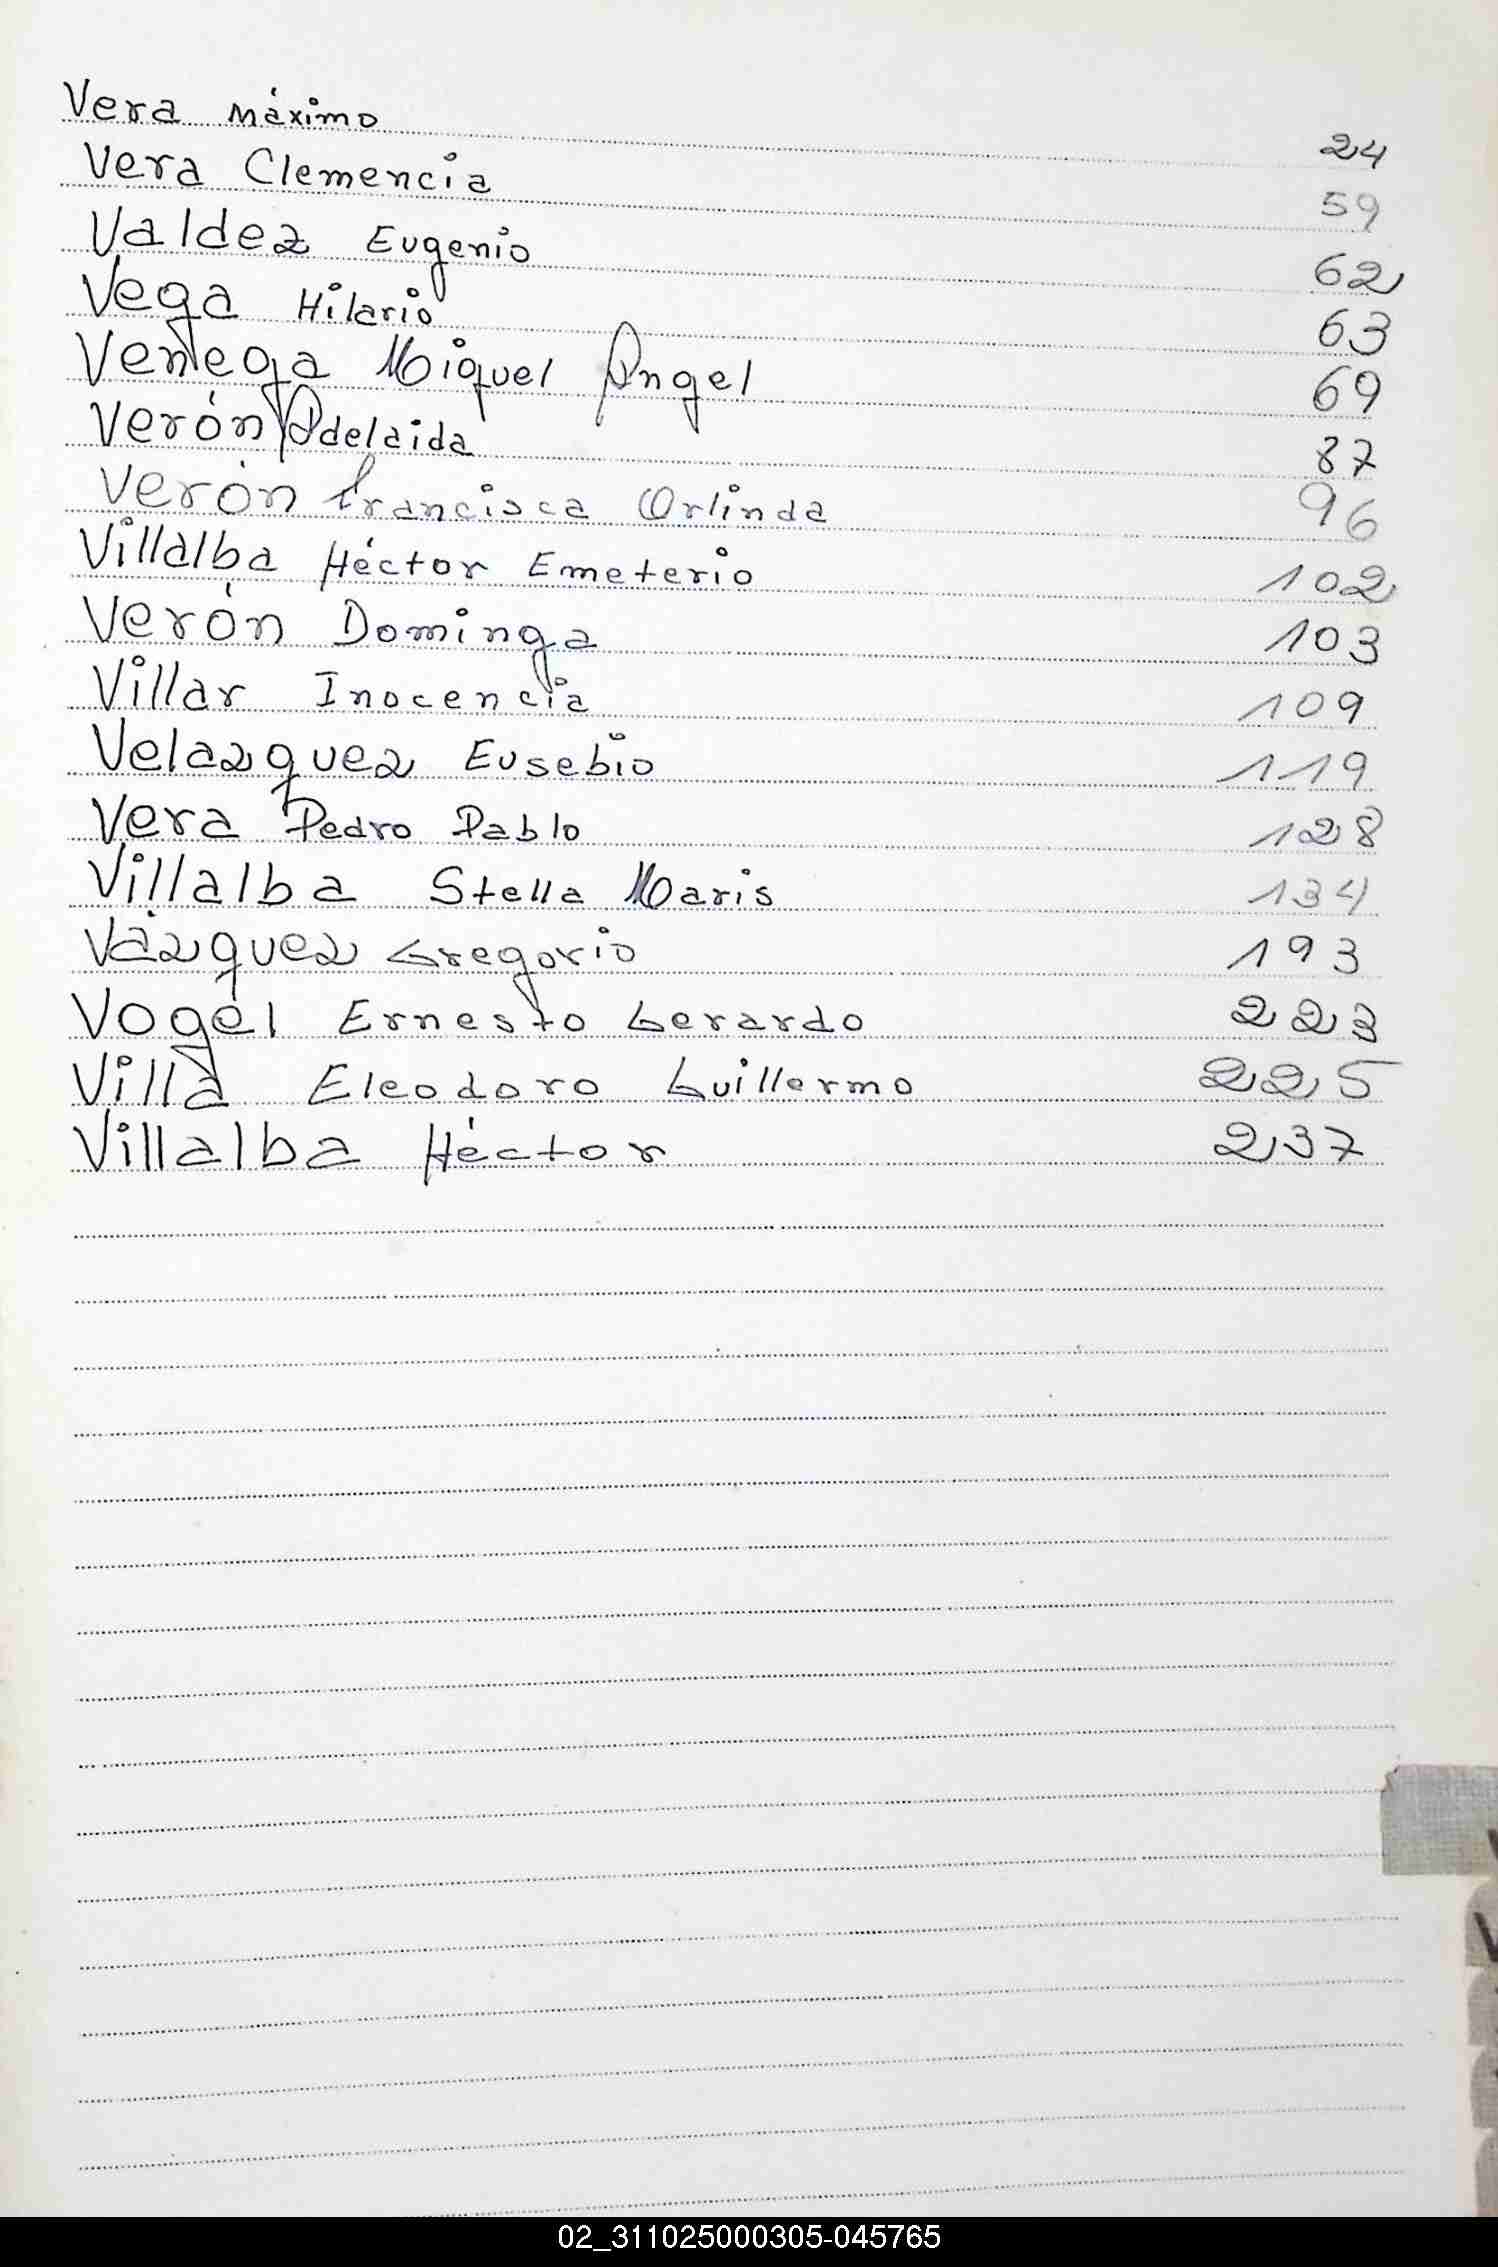 Vera Máximo 24
Vera Clemencia 59
Valdez Eugenio 62
Vega Hilario 63
Venega Miguel Angel 69
Verón Adelaida 87
Verón Francisca Orlinda 96
Villalba Héctor Emeterio 102
Verón Dominga 103
Villar Inocencia 109
Velazquez Eusebio 119
Vera Pedro Pablo 128
Villalba Stella Maris 134
Vázquez Gregorio 193
Vogel Ernesto Gerardo 223
Villa Eleodoro Guillermo 225
Villalba Héctor 237
V
02_311025000305-045765